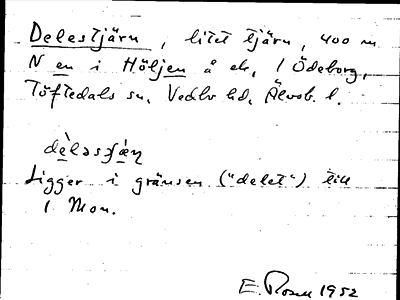 Delestjärn, litet tjärn, 400 m
N en i Höljen å ek. 1 Ödeborg,
Töftedals sn, Vedbo hd, Älvsb. l.
Ligger i gränsen ("delet") till
1 Mon.
E. Rosell 1952